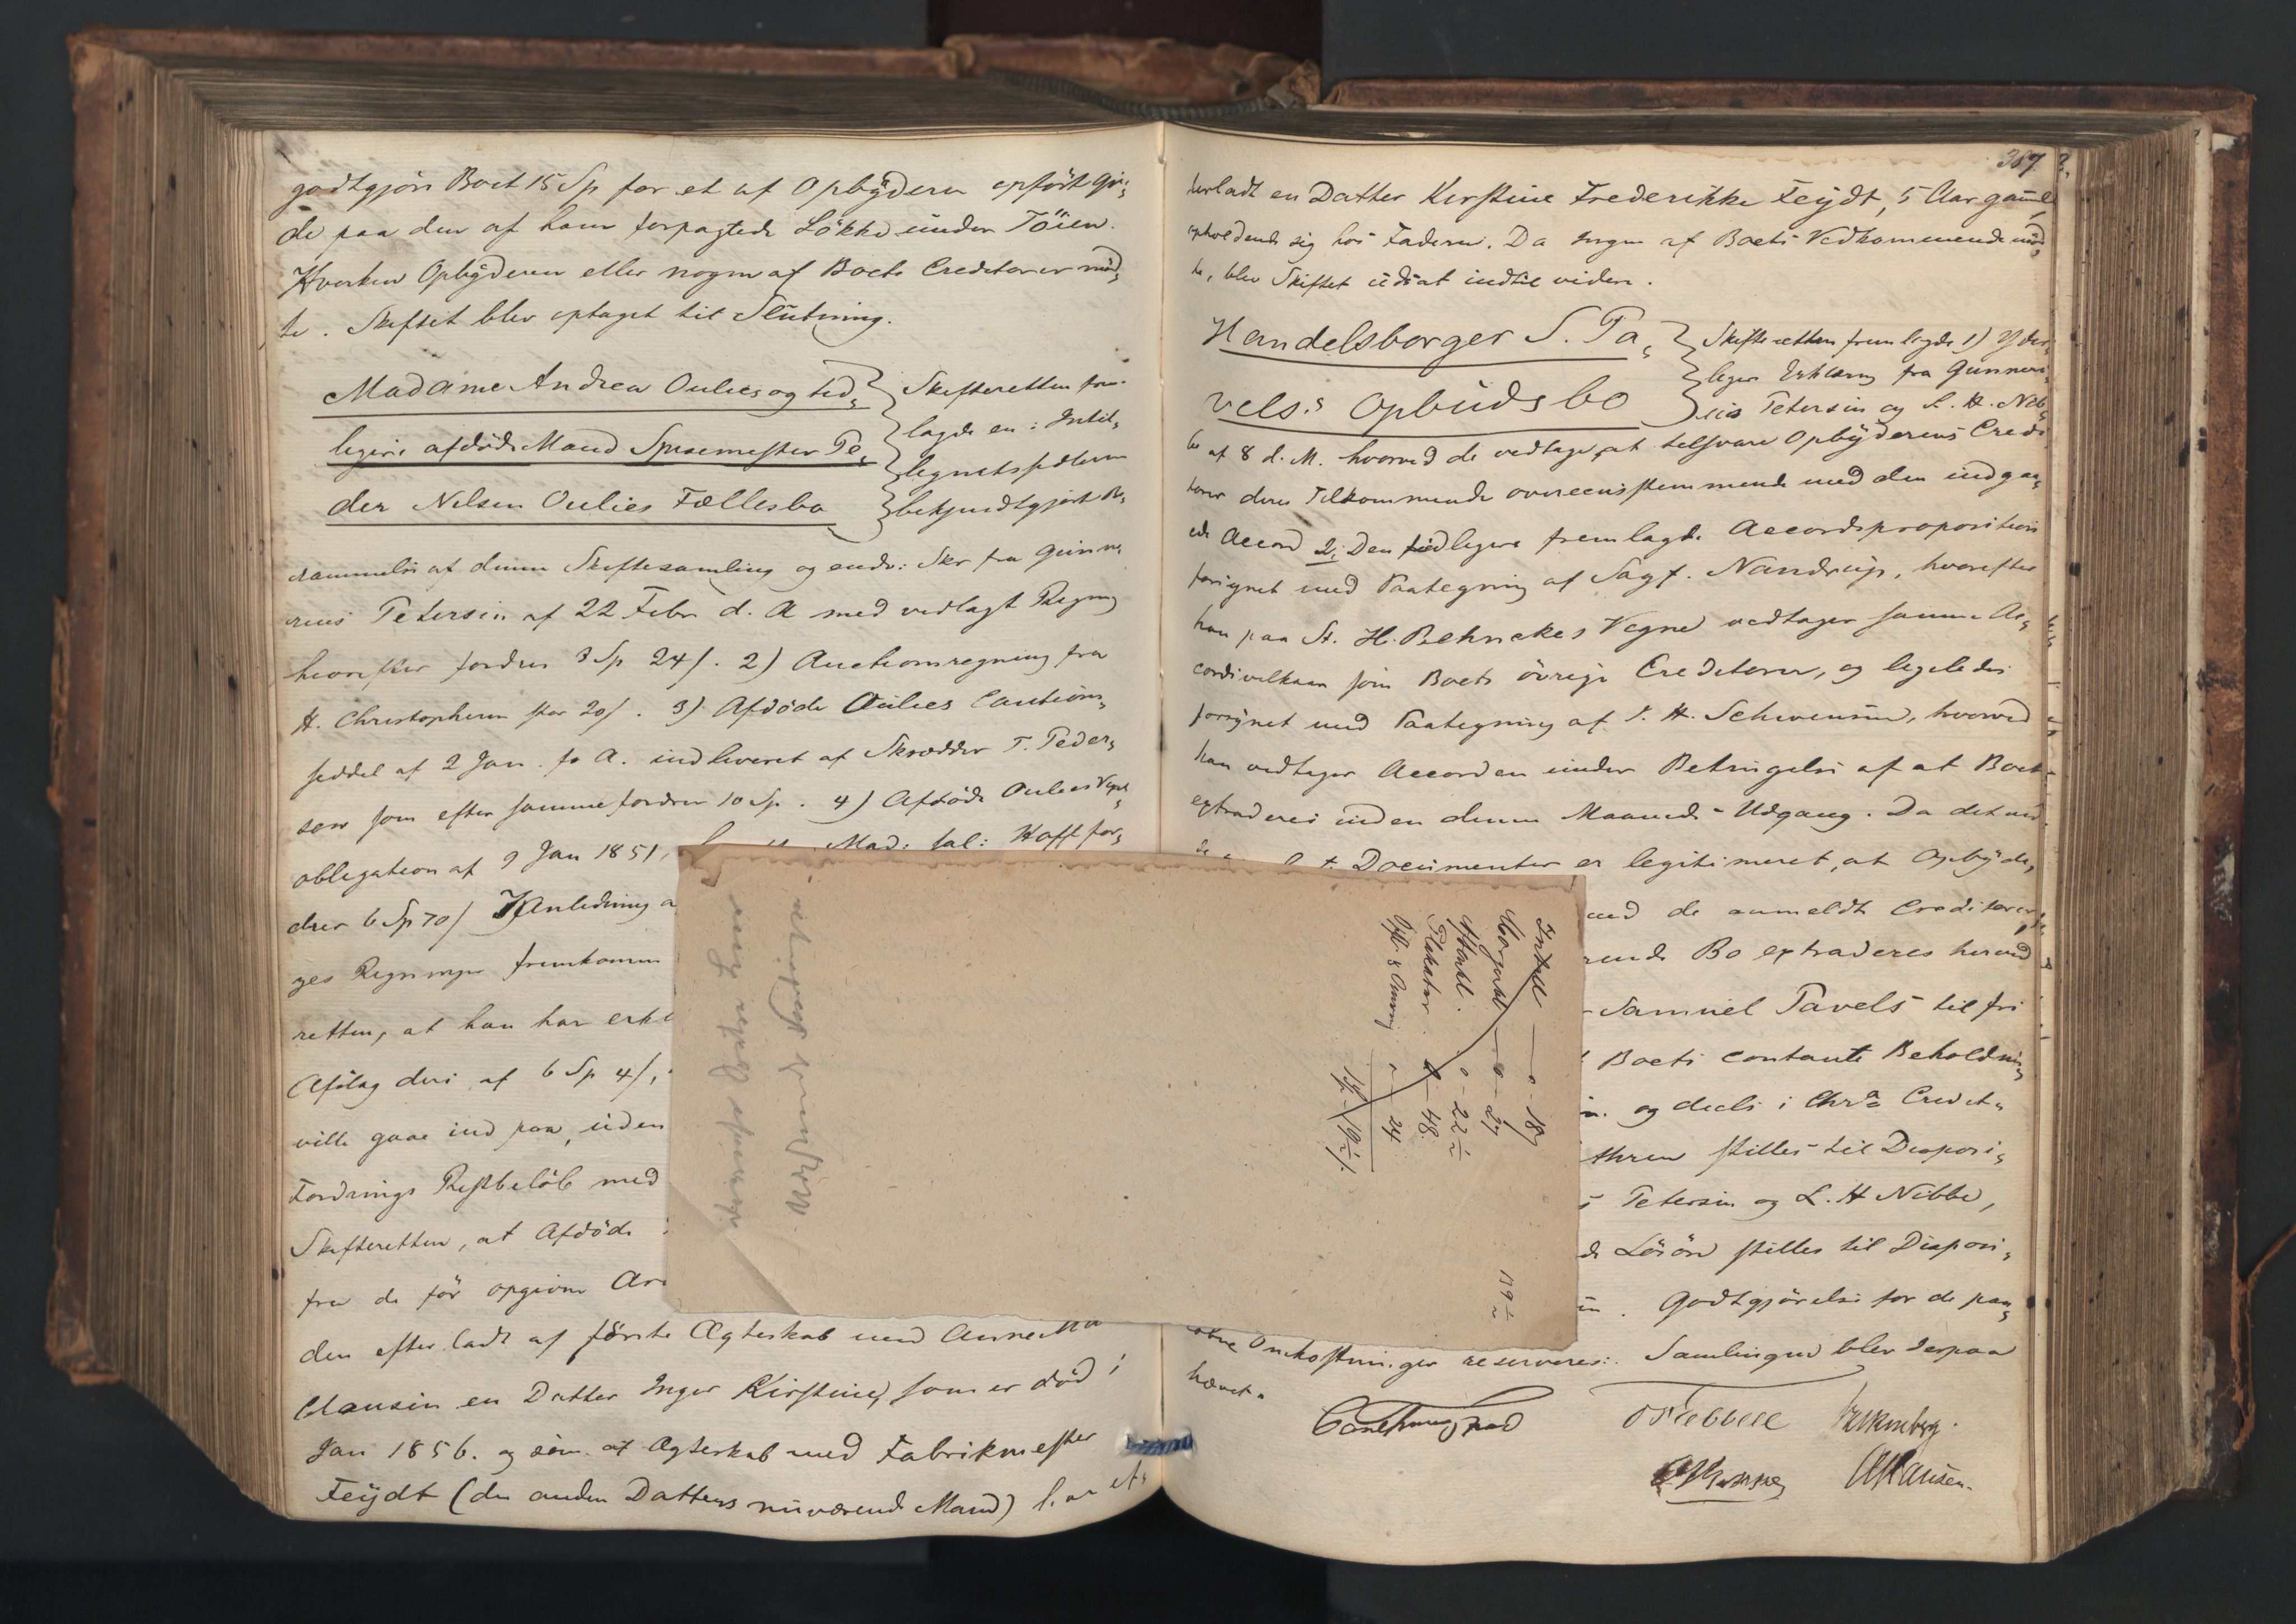 godtgjöre Boet 15 Sp for et af Opbÿderen opfört Gjer,
de paa den af ham forpagtede Lökke under Töien.
Hverken Opbÿderen eller nogen af Boets Creditorer möd,
te. Skiftet blev optaget til Slutning.
Madame Andrea Oulies og tid,
ligere afdöde Mand Spisemester Pe,
der Nilsen Oulies Fællesbo
Skifteretten frem
lagde en i Intel,
ligentssedlerne
bekjendtgjort Be,
rammelse af denne Skiftesamling og endv: Skr fra Gunne,
rius Petersen af 22 Febr d. A med vedlagt Regning
hvorefter fordres 3 Sp 24 s. 2) Auctionsregning fra
H. Christophersen stor 20 s. 3) Afdöde Oulies Cautions,
seddel af 2 Jan. f. A. indleveret af Skrædder T. Peder,
sen som efter samme fordrer 10 Sp. 4) Afdöde Oulies
obligation af 9 Jan 1851, Mad: sal: Hoff for,
drer 6 Sp 70 s I Anledning a
ges Regninger fremkomm
retten, at han har erkl
Afslag deri af 6 Sp 4 s,
ville gaae ind paa, uden
Fordrings Restbelöb med
Skifteretten, at Afdöde
fra de för opgivne Ar
den efterladt af förste Ægteskab med Anne Ma
Clausen en Datter Inger Kirstine, som er död i
Jan 1856. og som af Ægteskab med Fabrikmester
Feÿdt (den anden Datters nuværende Mand) har ef,
387
terladt en Datter Kirstine Frederikke Feÿdt, 5 Aar gammel,
opholdende sig hos Faderen. Da Ingen af Boets Vedkommende möd,
te, blev Skiftet udsat indtil videre.
Handelsborger S. Pa,
vels's Opbudsbo
Skifteretten fremlagde 1) Yder,
ligere Erklæring fra Gunneri,
us Petersen og L. H. Nib,
be af 8 d. M. hvorved de vedtage at tilsvare Opbÿderens Credi
torer deres Tilkommende overeensstemmende med den indgaa,
ede Accord 2, Den tidligere fremlagte Accordsproposition
forsynet med Paategning af Sagf. Nandrup, hvorefter
han paa St. H. Behnckes Vegne vedtager samme Ac,
cordsvilkaar som Boets övrige Creditorer, og ligeledes
forsynet med Paategning af J. H. Schwensen, hvorved
han vedtager Accorden under Betingelse af at Boet
extraderes inden denne Maaneds Udgang. Da det ved
Documenter er legitimeret, at Opbÿde,
med de anmeldte Creditorer,
rende Bo extraderes herved
Samuel Pavels til fri
Boets contante Beholdning
og deels i Chra Credit,
thren stilles til Disposi,
Petersen og L. H Nibbe,
de Lösöre stilles til Disposi,
Godtgjörelse for de paa,
löbne Omkostninger reserveres. Samlingen blev derpaa
hævet.
A Hansen.
Intell — o - 18
Morgenbl — o - 27
Aftenbl. o - 22 ½
Plakater o - 48
o - 24
1 - 19 ½